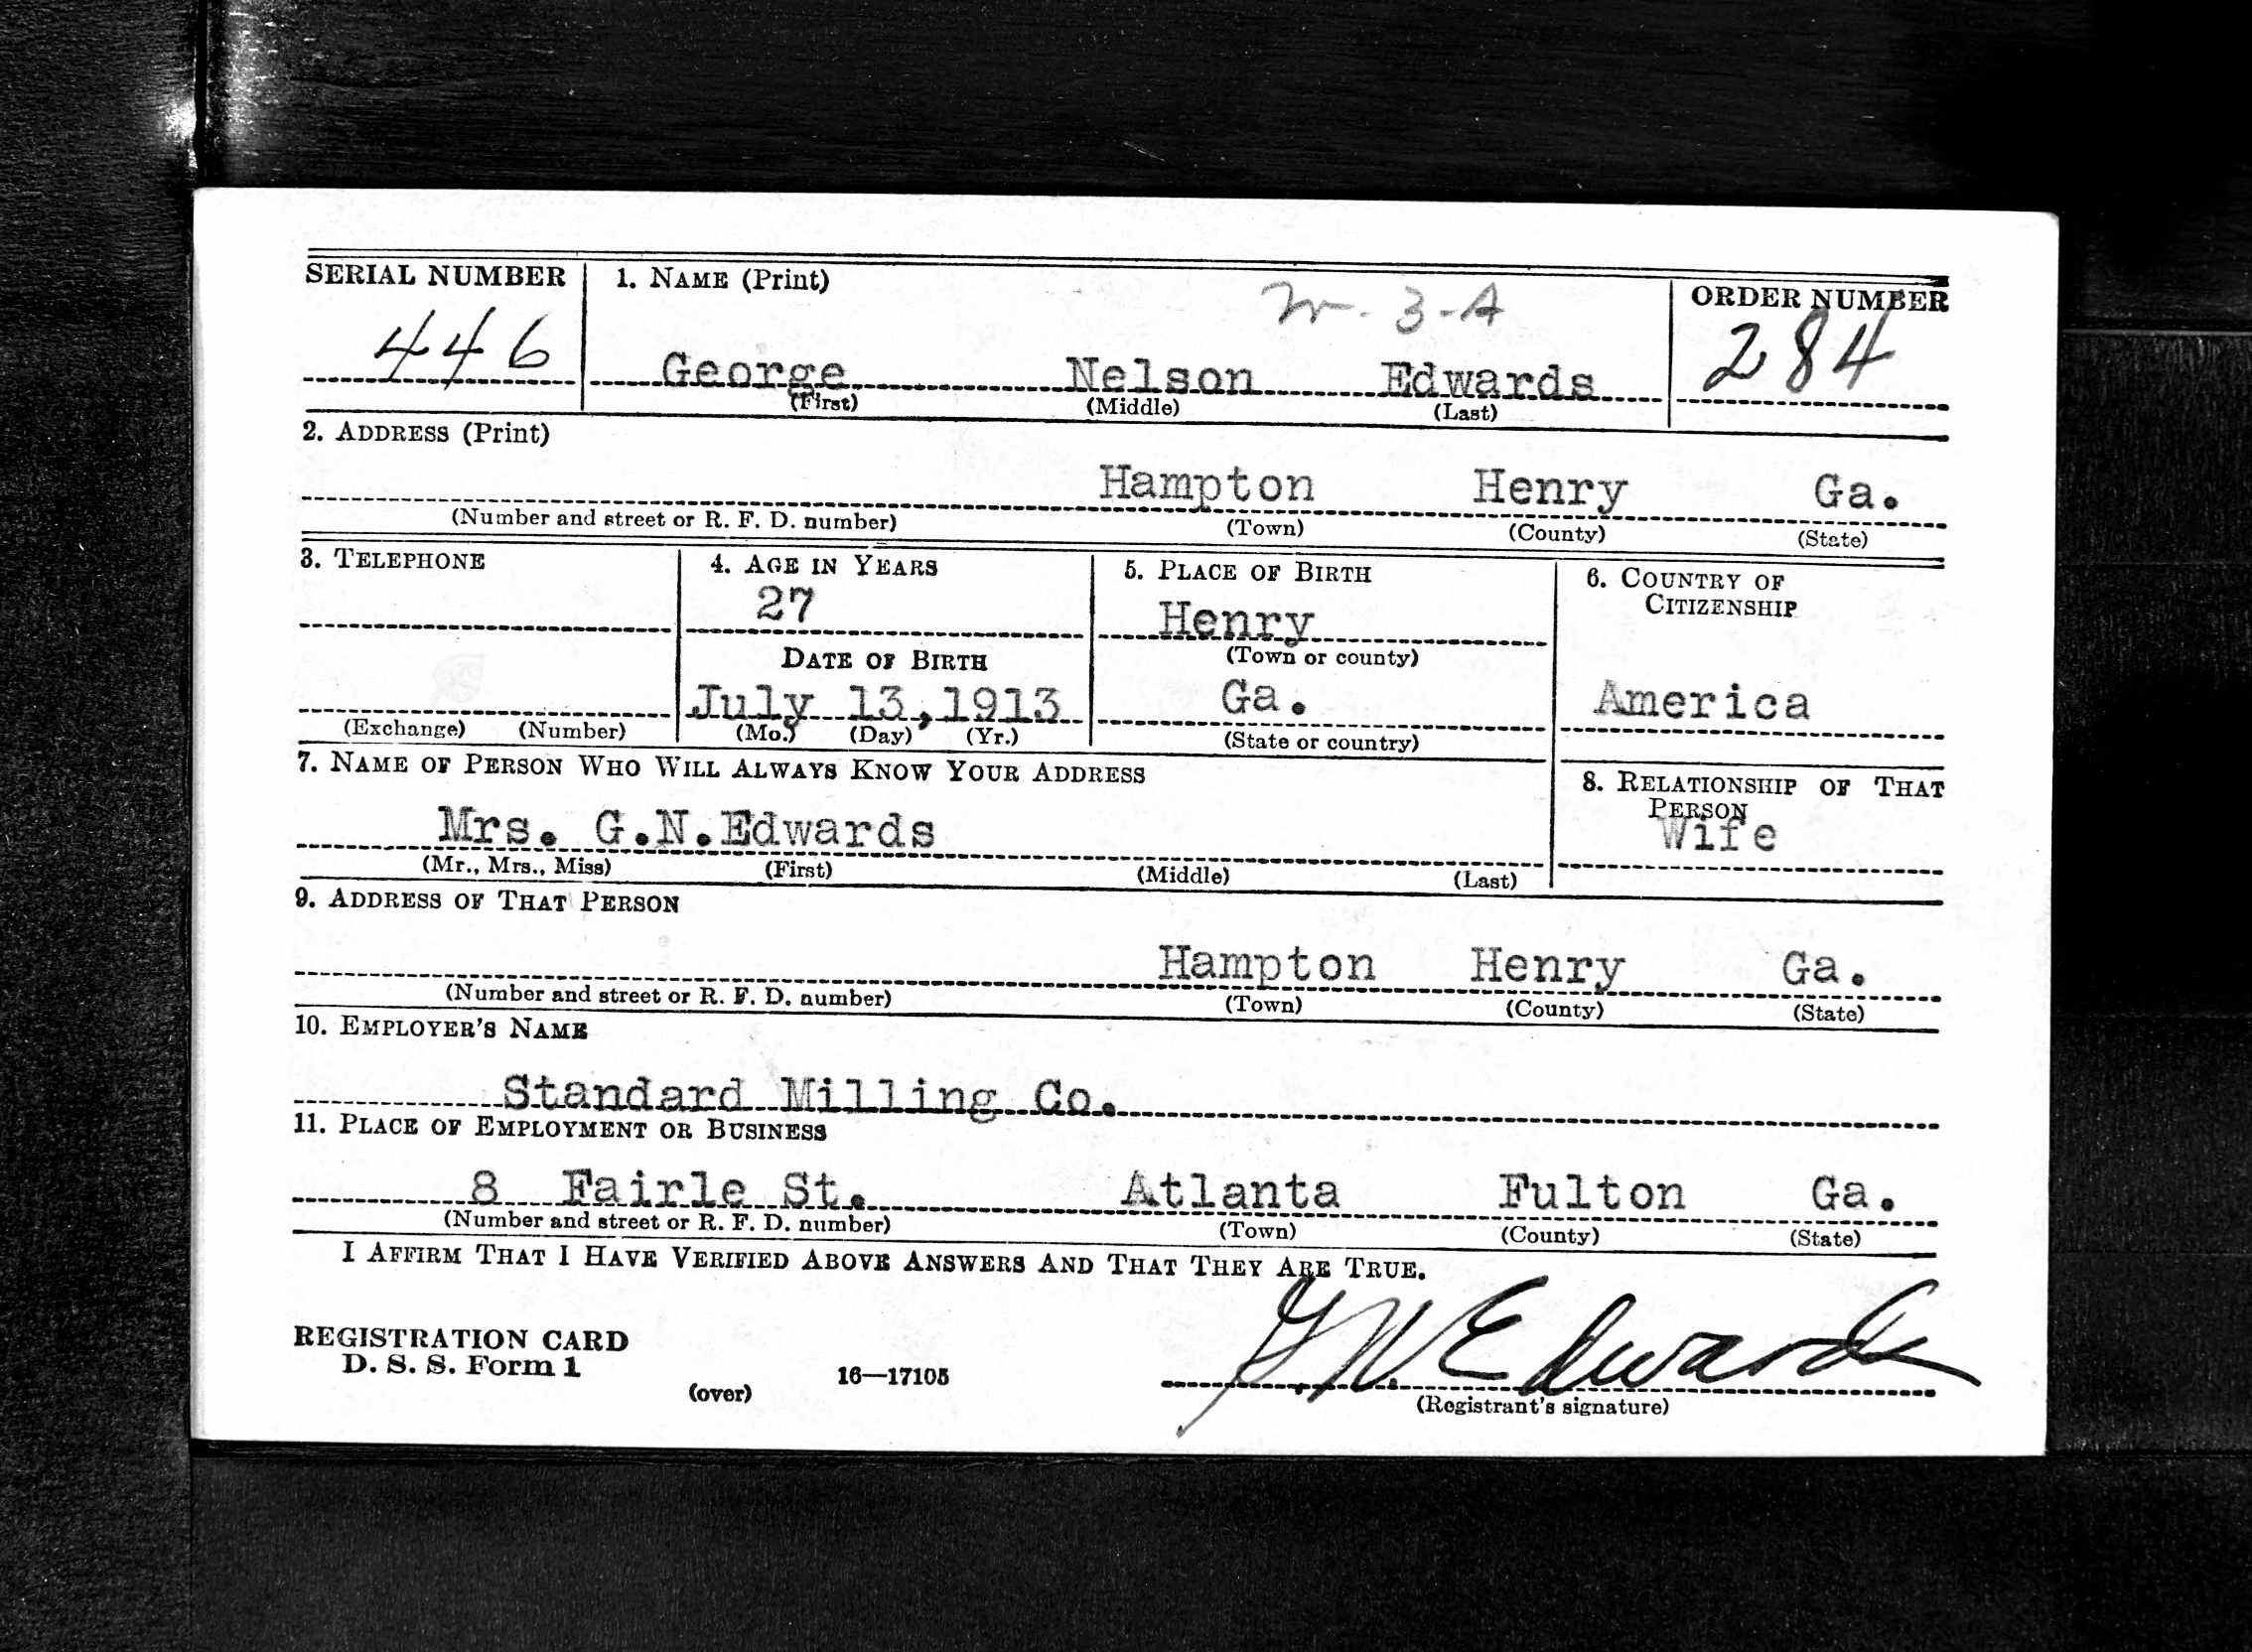 SERIAL NUMBER 1. NAME (Print) ORDER NUMBER
446 3-A 284
George Nelson Edwards
(First) (Middle) (Last)
2. ADDRESS (Print)
Hampton Henry Ga.
(Number and street or R. F. D. number) (Town) (County) (State)
3. TELEPHONE 4. AGE IN YEARS 5. PLACE OF BIRTH 6. COUNTRY OF
CITIZENSHIP
27 Henry
DATE OF BIRTH (Town or county)
July 13, 1913 Ga. America
(Exchange) (Number) (Mo.) (Day) (Yr.) (State or country)
7. NAME OF PERSON WHO WILL ALWAYS KNOW YOUR ADDRESS 8. RELATIONSHIP OF THAT
PERSON
Mrs. G.N.Edwards Wife
(Mr., Mrs., Miss) (First) (Middle) (Last)
9. ADDRESS OF THAT PERSON
Hampton Henry Ga.
(Number and street or R. F. D. number) (Town) (County) (State)
10. EMPLOYER'S NAME
Standard Milling Co.
11. PLACE OF EMPLOYMENT OR BUSINESS
8 Fairle St. Atlanta Fulton Ga.
(Number and street or R. F. D. number) (Town) (County) (State)
I AFFIRM THAT I HAVE VERIFIED ABOVE ANSWERS AND THAT THEY ARE TRUE.
G. N. Edwards
REGISTRATION CARD
D. S. S. Form 1 16—17105
(over) (Registrant's signature)